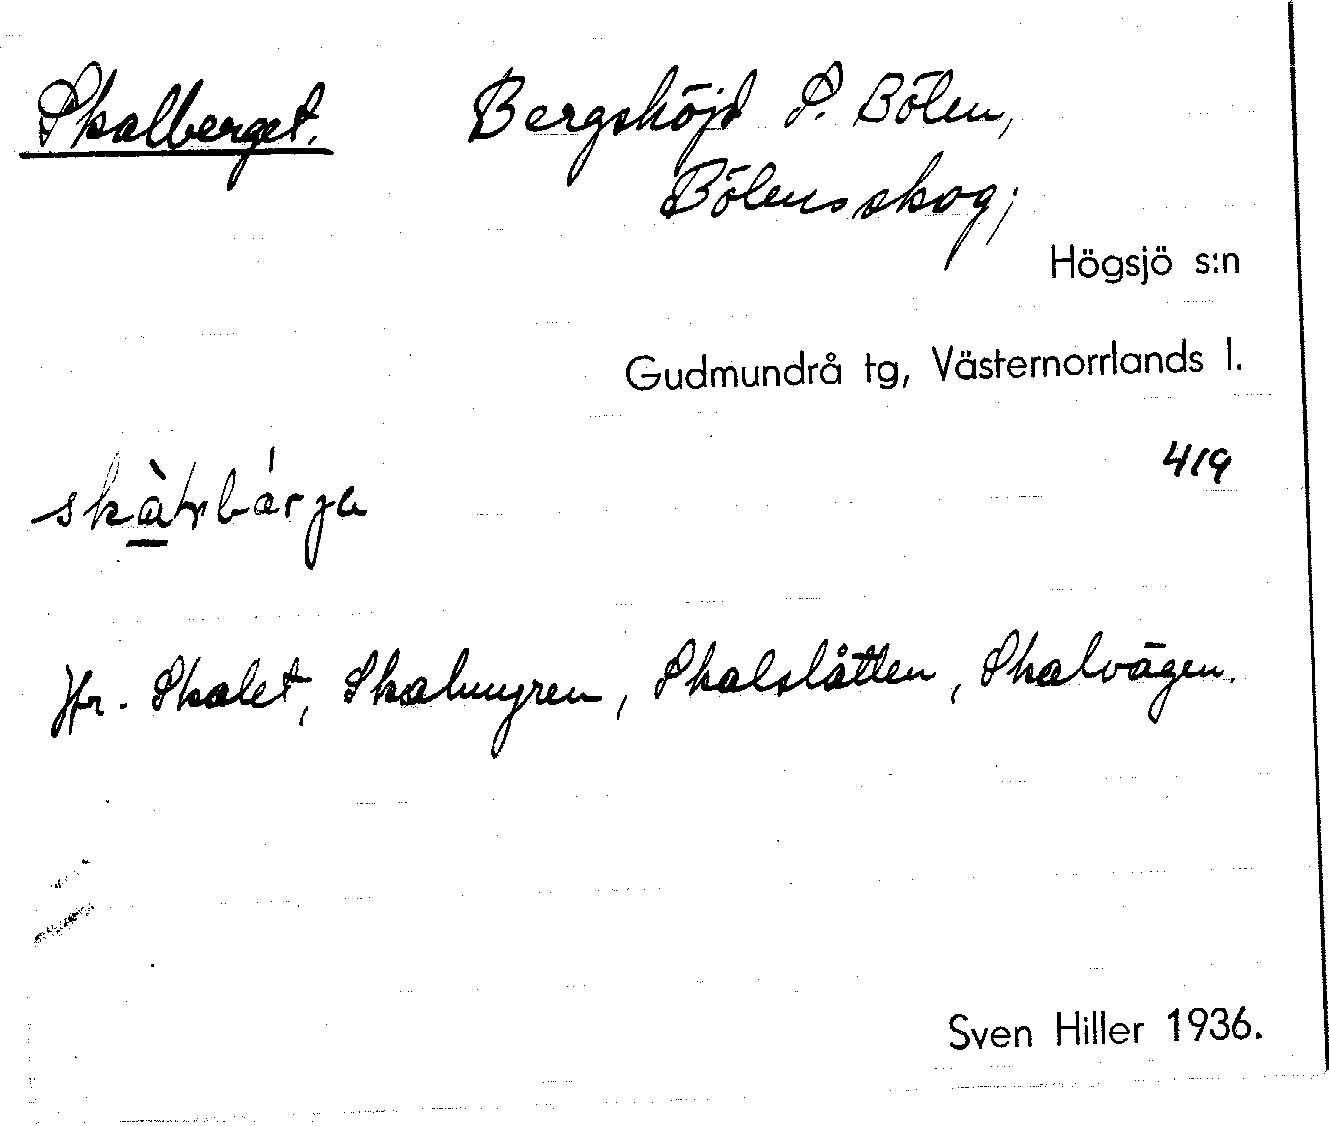 Skalberget. Bergshöjd S. Bölen,
Bölens skog;
Högsjö s:n
Gudmundrå tg, Västernorrlands l.
419
Jfr. Skalet, Skalmyren, Skalslåtten, Skalvägen.
Sven Hiller 1936.